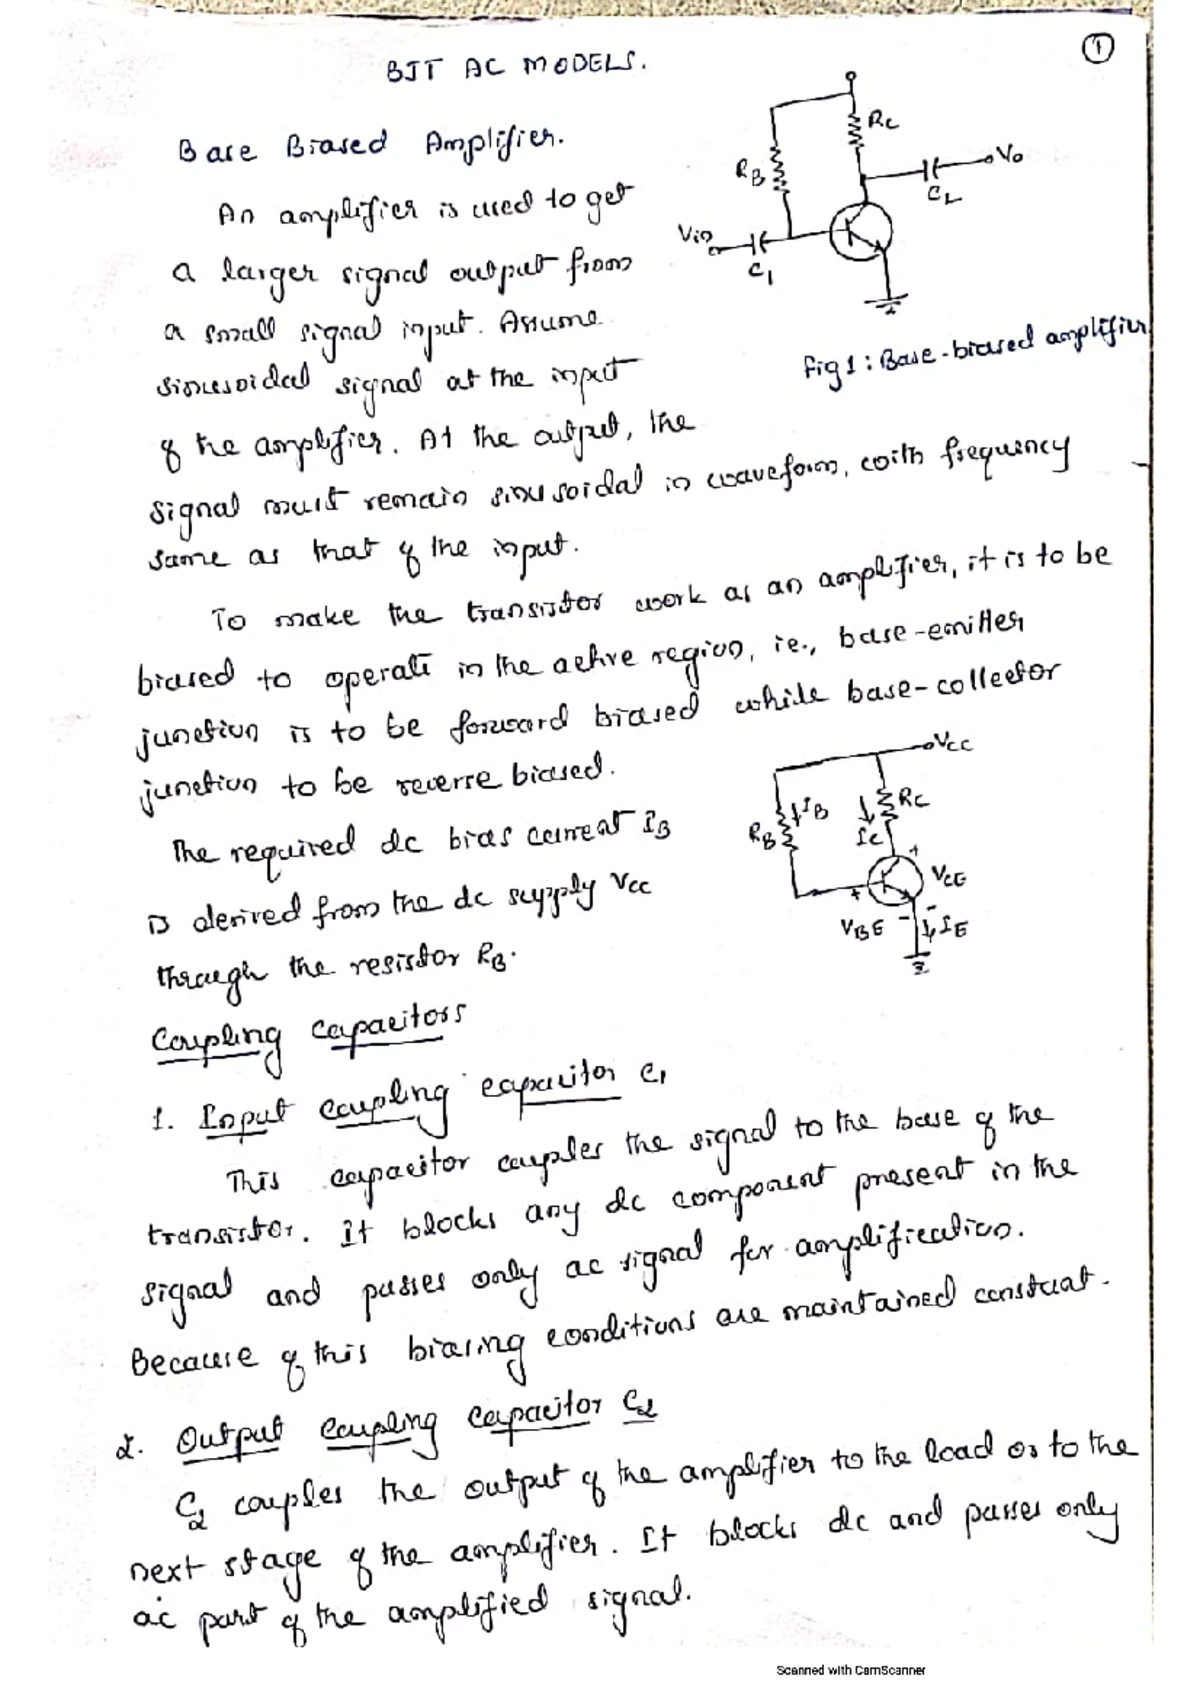 1
BJT AC MODELS.
Base Biased Amplifier.
RC
RB
Vo
C2
Vin
C1
Fig 1: Base-biased amplifier
An amplifier is used to get
a larger signal output from
a small signal input. Assume
sinusoidal signal at the input
of the amplifier. At the output, the
signal must remain sinusoidal in waveform, with frequency
same as that of the input.
To make the transistor work as an amplifier, it is to be
biased to operate in the active region, ie., base-emitter
junction is to be forward biased while base-collector
junction to be reverse biased.
The required dc bias current IB
is derived from the dc supply VCC
through the resistor RB.
VCC
RB
IB
RC
IC
+
VCE
+
VBE
-
-
IE
Coupling Capacitors
1. Input coupling capacitor C1
This capacitor couples the signal to the base of the
transistor. It blocks any dc component present in the
signal and passes only ac signal for amplification.
Because of this biasing conditions are maintained constant.
2. Output coupling capacitor C2
C2 couples the output of the amplifier to the load or to the
next stage of the amplifier. It blocks dc and passes only
ac part of the amplified signal.
Scanned with CamScanner